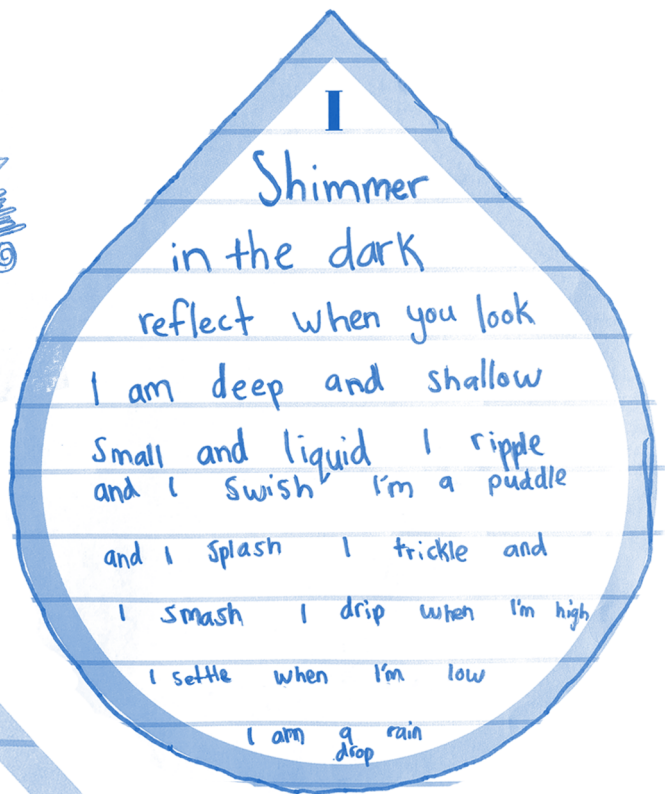 I
Shimmer
in the dark
reflect when you look
I am deep and shallow
small and liquid I ripple
and I swish I'm a puddle
and I splash I trickle and
I smash I drip when I'm high
I settle when I'm low
I am a rain
drop